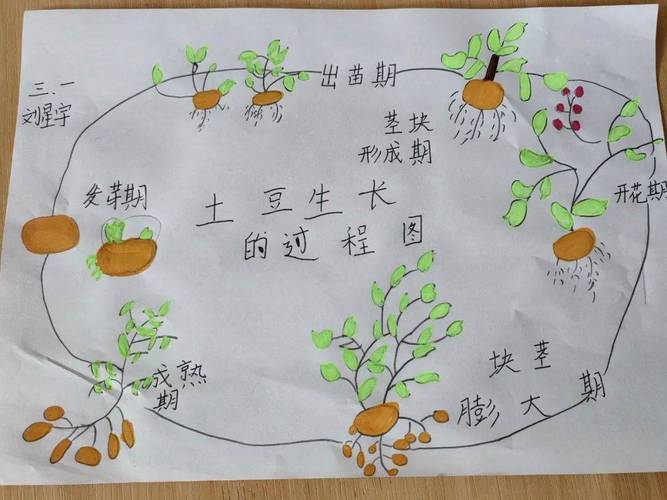 三.一
刘星宇
发芽期
出苗期
茎块
形成期
开花期
土豆生长
的过程图
块茎
膨大期
成熟
期